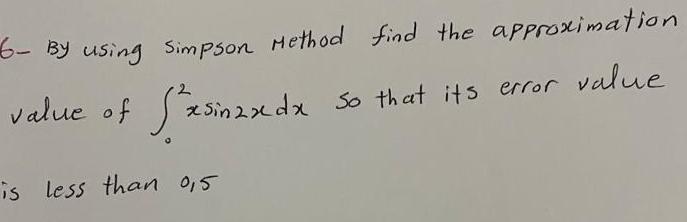 6- By using Simpson Method find the approximation
value of ∫₀² x sin2x dx so that its error value
is less than 0,5